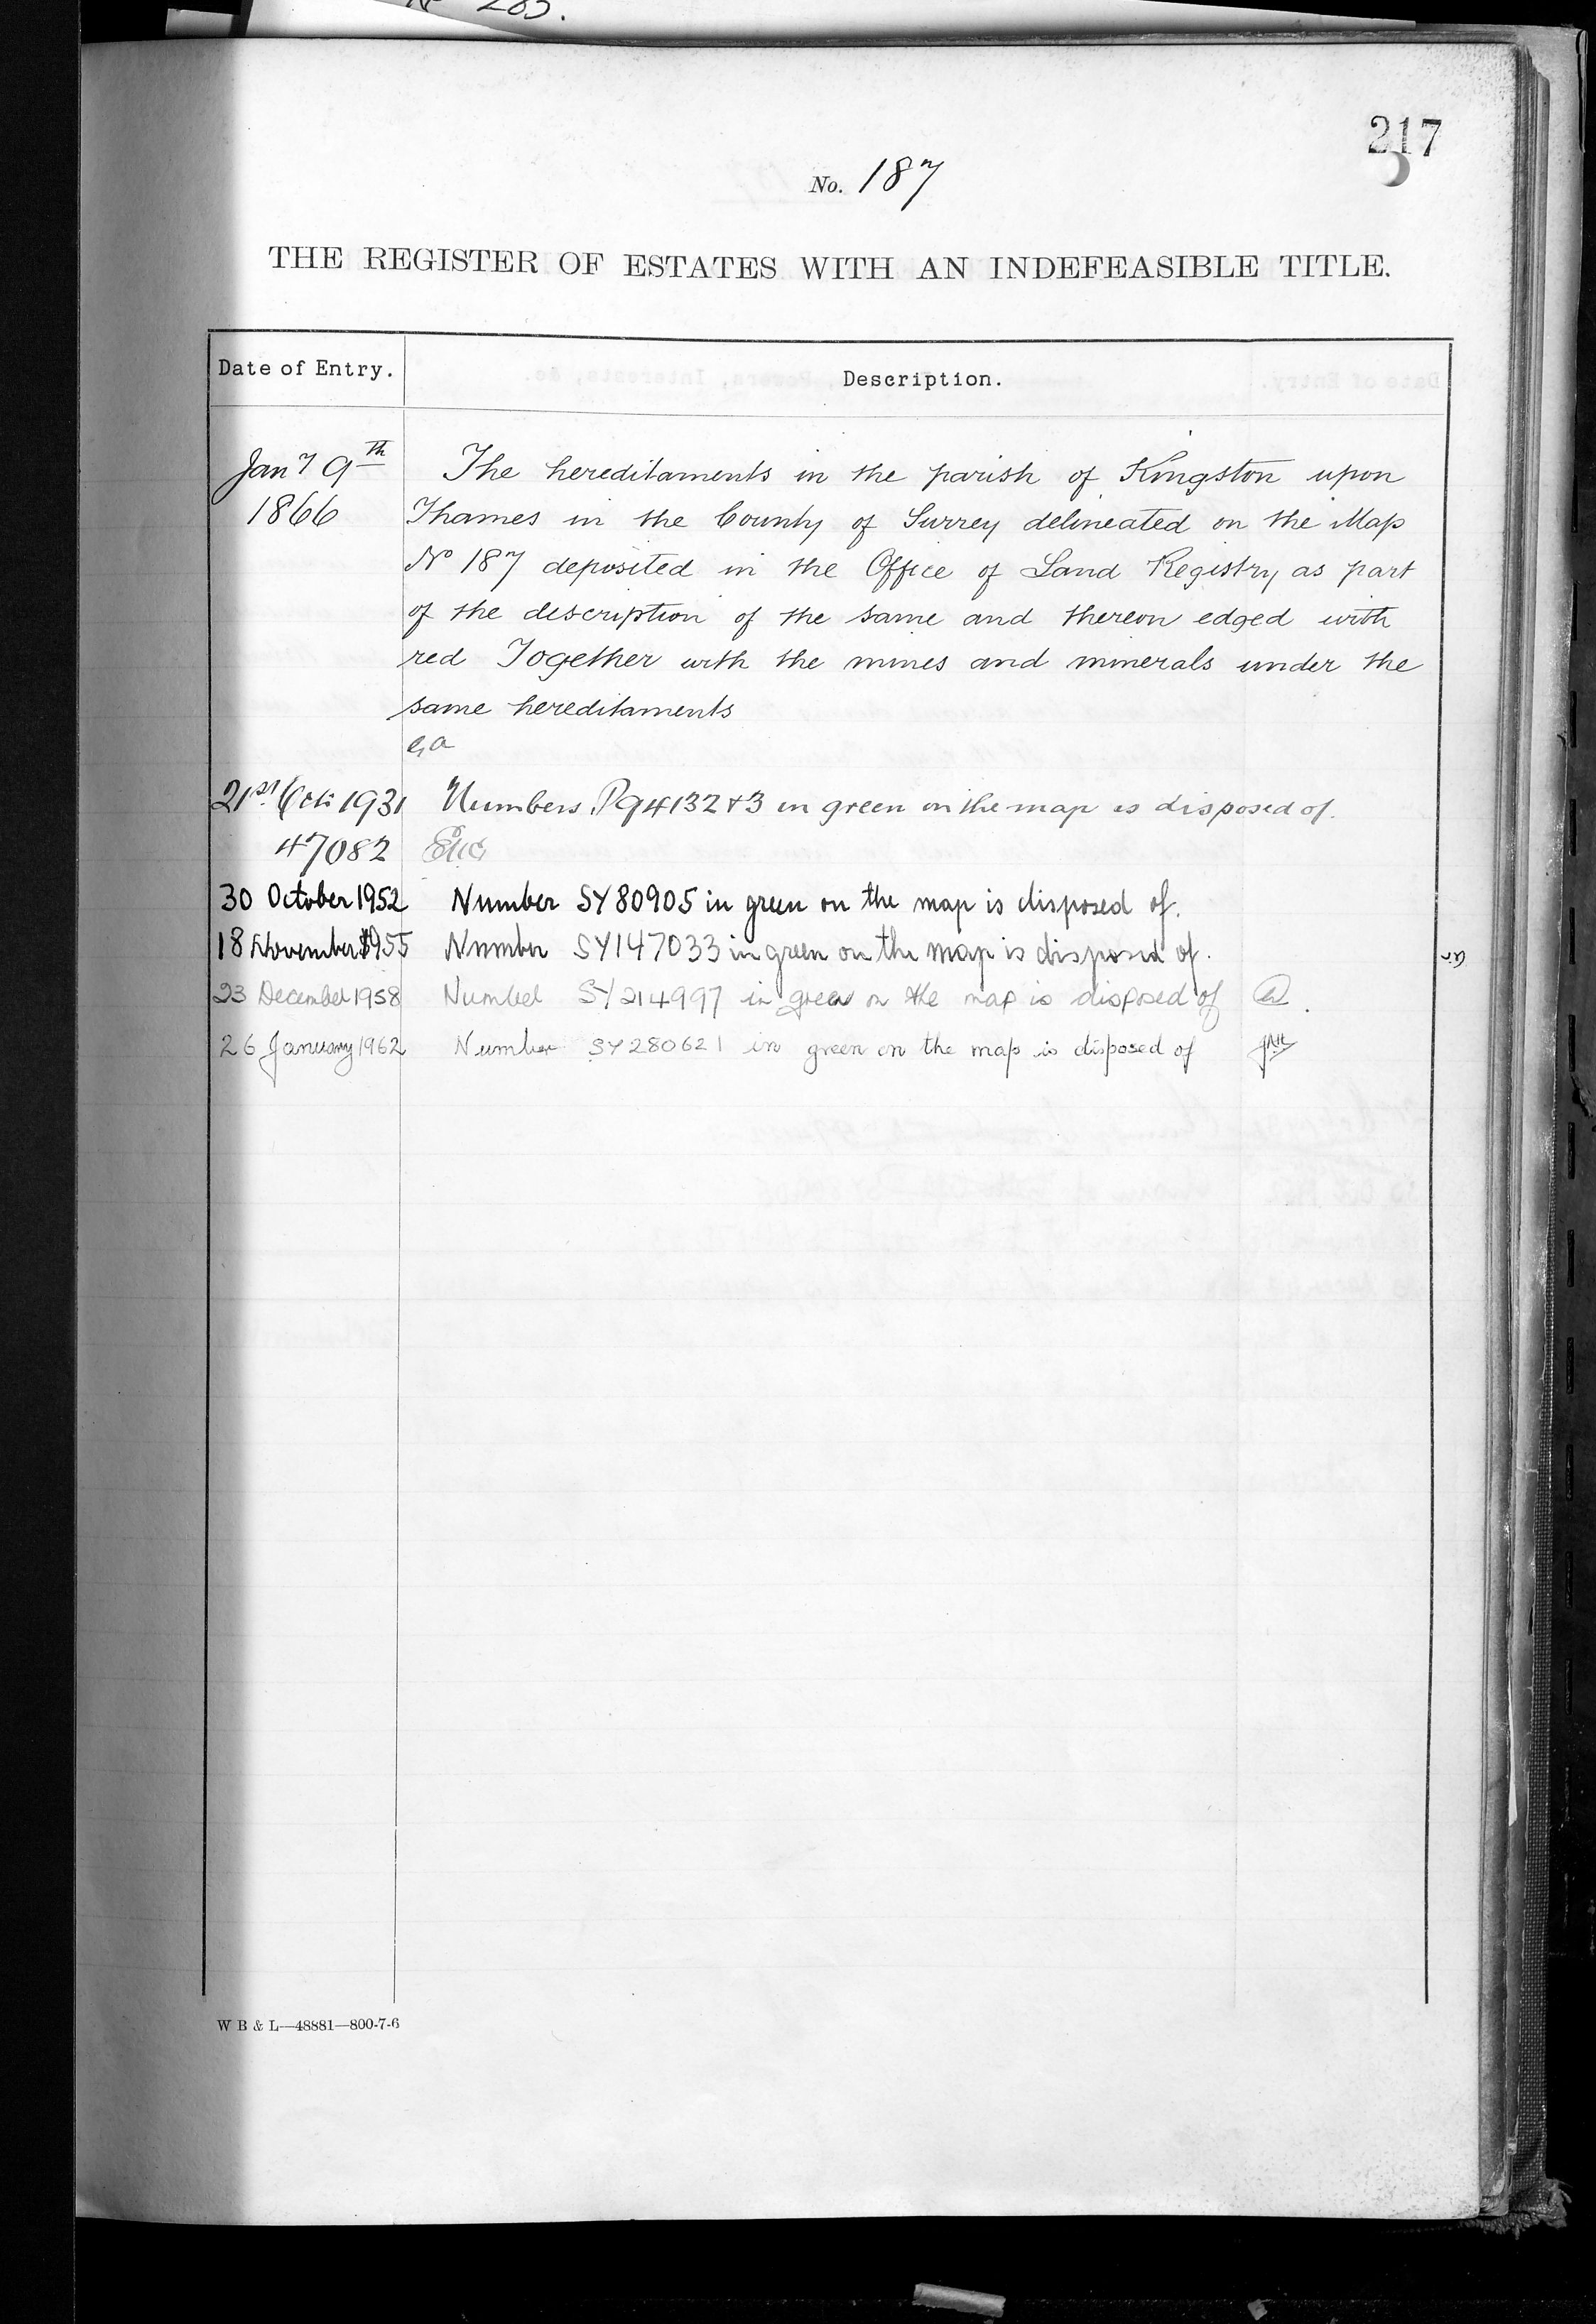 217
No. 187
THE REGISTER OF ESTATES WITH AN INDEFEASIBLE TITLE.
Date of Entry. Description.
Jany 9th The hereditaments in the parish of Kingston upon
1866 Thames in the County of Surrey delineated on the Map
No 187 deposited in the Office of Land Registry as part
of the description of the same and thereon edged with
red Together with the mines and minerals under the
same hereditaments
21st Oct: 1931 Numbers P94132 & 3 in green on the map is disposed of.
47082
30 October 1952 Number SY80905 in green on the map is disposed of.
18 November 1955 Number SY147033 in green on the map is disposed of.
23 December 1958 Number SY214997 in green on the map is disposed of
26 January 1962 Number SY280621 in green on the map is disposed of
W B & L—48881—800-7-6